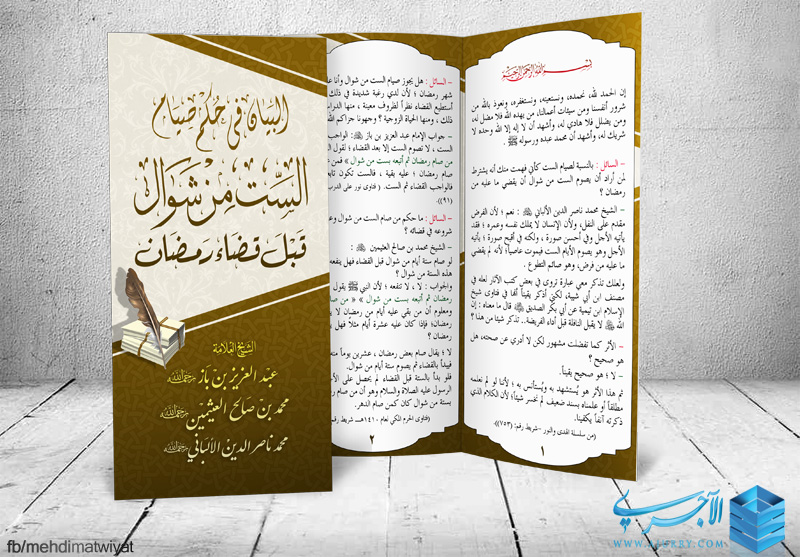 البيان في حكم صيام
الست من شوال
قبل قضاء رمضان
الشيخ العلامة
عبد العزيز بن باز رحمه الله
محمد بن صالح العثيمين رحمه الله
محمد ناصر الدين الألباني رحمه الله
بسم الله الرحمن الرحيم
إن الحمد لله، نحمده، ونستعينه، ونستغفره، ونعوذ بالله من
شرور أنفسنا ومن سيئات أعمالنا، من يهده الله فلا مضل له،
ومن يضلل فلا هادي له، وأشهد أن لا إله إلا الله وحده لا
شريك له، وأشهد أن محمد عبده ورسوله ﷺ .
– السائل : بالنسبة لصيام الست كأني فهمت منك أنه يشترط
لمن أراد أن يصوم الست من شوال أن يقضي ما عليه من
رمضان ؟
– الشيخ محمد ناصر الدين الألباني : نعم ؛ لأن الفرض
مقدم على النفل، ولأن الإنسان لا يملك نفسه وعمره ؛ فقد
يأتيه الأجل وفي أحسن صورة ، ولكنه في أقبح صورة ؛ يأتيه
الأجل وهو يصوم الأيام الست فيموت عاصياً؛ لأنه لم يقضي
ما عليه من فرض، وهو صائم التطوع .
ولعلك تذكر معي عبارة تروى في بعض كتب الآثار لعله في
مصنف ابن أبي شيبة، لكني أذكر يقيناً أنها في فتاوى شيخ
الإسلام ابن تيمية عن أبي بكر الصديق قال ما معناه : إن
الله لا يقبل النافلة قبل أداء الفريضة.. تذكر شيئا من هذا ؟
– الأثر كما تفضلت مشهور لكن لا أدري عن صحته، هل
هو صحيح ؟
– لا ؛ هو صحيح يقيناً.
ثم هذا الأثر هو يُستشهد به ويُستأنس به ؛ لأننا لو لم نعلمه
مطلقاً أو علمناه بسند ضعيف لم نخسر شيئاً؛ لأن الكلام الذي
ذكرته آنفاً يكفينا.
(من سلسلة الهدى والنور –شريط رقم: (٧٥٣)).
١
– السائل : هل يجوز صيام الست من شوال وأنا
شهر رمضان ؛ لأن لدي رغبة شديدة في ذلك
أستطيع القضاء نظراً لظروف معينة ، منها الدراسة
ذلك ، ومنها الحياة الزوجية ؟ وجهونا جزاكم الله
– جواب الإمام عبد العزيز بن باز : الواجب
الست ، لا نصوم الست إلا بعد القضاء ؛ لقول
من صام رمضان ثم أتبعه بست من شوال » فمن
صام رمضان ؛ عليه بقية ، فالست تكون تابعة
فالواجب القضاء ثم الست. ( فتاوى نور على الدرب
(٩١)).
– السائل : ما حكم من صام الست من شوال
شروعه في قضائه ؟
– الشيخ محمد بن صالح العثيمين :
لو صام ستة أيام من شوال قبل القضاء فهل ينفعه
هذه الستة من شوال ؟
والجواب : لا ، لا تنفعه ؛ لأن النبي ﷺ يقول
رمضان ثم أتبعه بست من شوال »
ومعلوم أن من بقي عليه أيام من رمضان لا
رمضان؛ فإذا كان عليه عشرة أيام مثلاً فهل
رمضان ؟
لا ؛ يقال صام بعض رمضان ، عشرين يوماً
فيبدأ بالقضاء ثم يصوم ستة أيام من شوال.
فلو بدأ بالستة قبل القضاء لم يحصل على
الرسول عليه الصلاة والسلام وهو أن من صام
بستة من شوال كان كمن صام الدهر.
(فتاوى الحرم المكي لعام -١٤١٠هـ شريط رقم
٢
الآجري
WWW.AJURRY.COM
fb/mehdimatwiyat